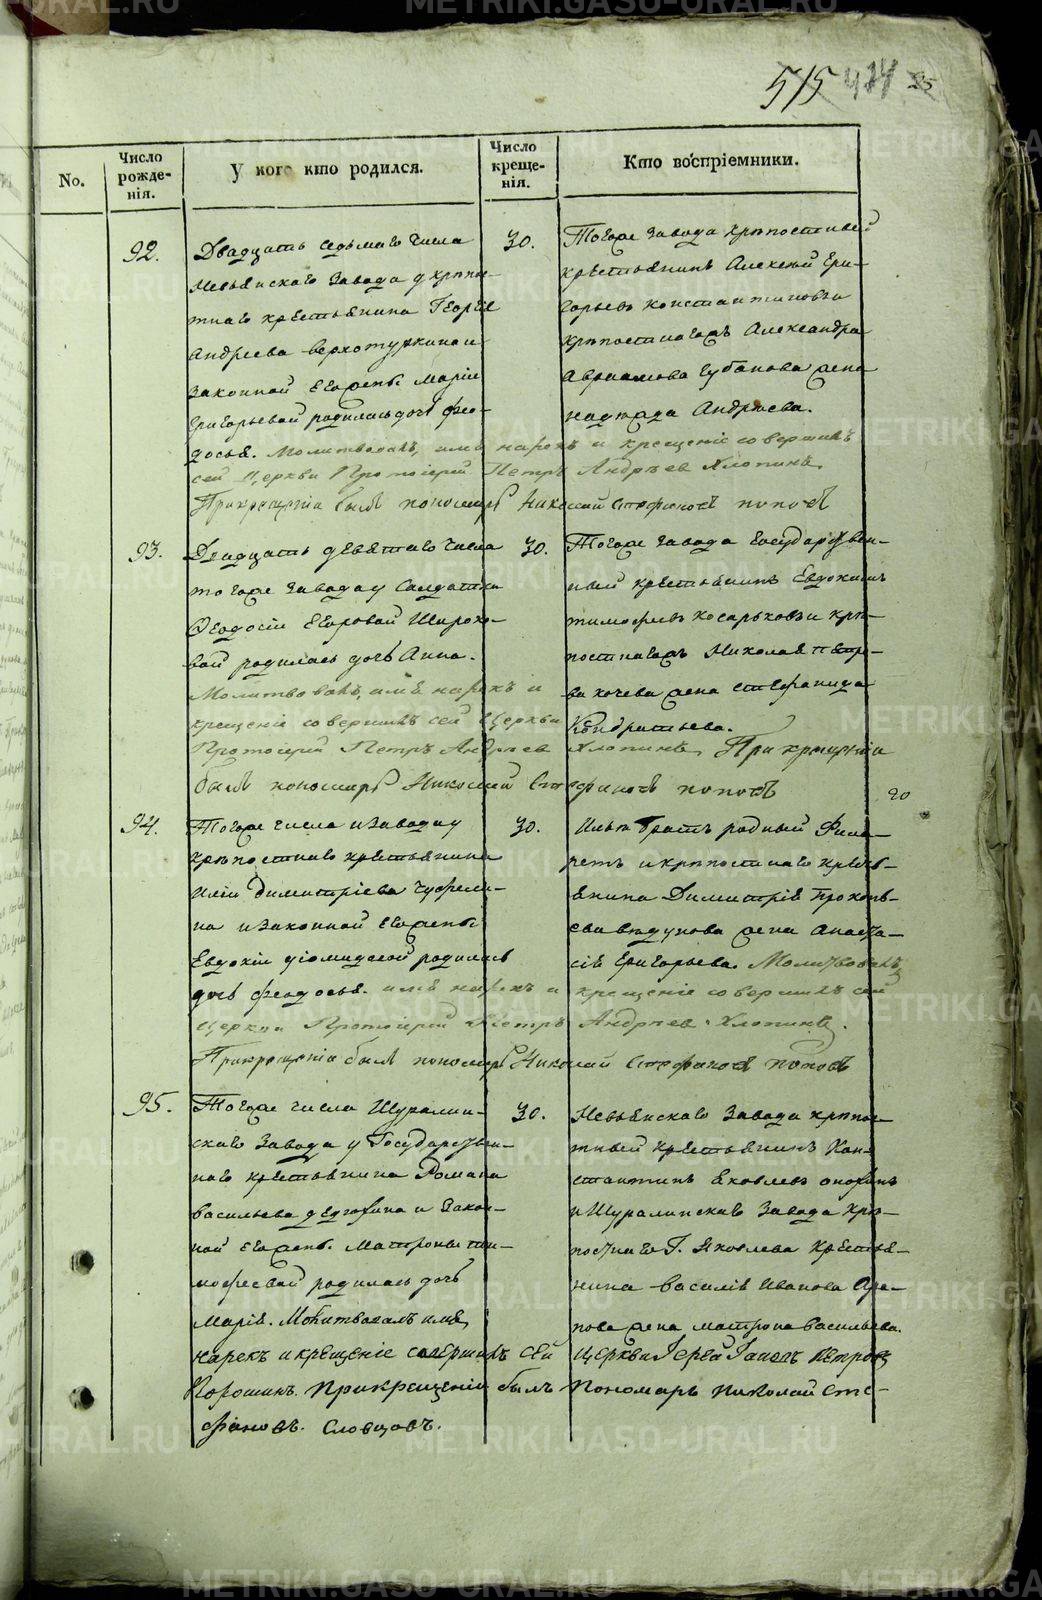 515 424 25
No.
Число рожде-нія.
У кого кто родился.
Число креще-нія.
Кто воспріемники.
92.
Двадцать седьмаго числа
Невьянскаго Завода у крѣпос-
тнаго крестьянина Георгія
Андреева Верхотуркина и
законной его жены Маріи
Григорьевой родилась дочь Фео-
досья. Молитвовалъ, имя нарекъ и крещеніе совершилъ
сей Церкви Протоіерей Петръ Андреев Хлопинъ.
При крещеніи былъ пономарь Николай Стефановъ Поповъ
30.
Тогоже завода крѣпостный
крестьянинъ Алексѣй Гри-
горьевъ Константиновъ и
крѣпостнагожъ Александра
Авраамова Губанова жена
Надежда Андреева.
93.
Двадцать девятаго числа
тогоже завода у Солдатки
Феодосіи Егоровой Широко-
вой родилась дочь Анна.
Молитвовалъ, имя нарекъ и
крещеніе совершилъ сей Церкви
Протоіерей Петръ Андреев Хлопинъ, При крещеніи
былъ пономарь Николай Стефановъ Поповъ
30.
Тогоже завода Государствен-
ный крестьянинъ Евдокимъ
Тимофеевъ Косарьковъ и крѣ-
постнагожъ Николая Петро-
ва Кочева жена Стефанида
Кондратьева.
20
94.
Тогоже числа и завода у
крѣпостнаго крестьянина
Иліи Димитріева
на и законной его жены
Евдокіи Діомидовой родилась
дочь Феодосья. имя нарекъ и крещеніе совершилъ сей
Церкви Протоіерей Петръ Андреев Хлопинъ.
При крещеніи былъ пономарь Николай Стефановъ Поповъ
30.
братъ родный Фила-
ретъ и крѣпостнаго кресть-
янина Димитрія Прокопь-
ева Ведунова жена Анаста-
сія Григорьева. Молитвовалъ,
95.
Тогоже числа Шуралин-
скаго Завода у Государствен-
наго крестьянина Романа
Васильева Дедюхина и закон-
ной его жены Матроны Ти-
мофеевой родилась дочь
Марія. Молитвовалъ имя
нарекъ и крещеніе совершилъ сей Церкви Іерей Іаковъ Петровъ
Порошинъ. При крещеніи былъ Пономарь Николай Сте-
фановъ. Словцовъ.
30.
Невьянскаго Завода крѣпос-
тный крестьянинъ Кон-
стантинъ Яковлевъ
и Шуралинскаго Завода крѣ-
постнаго Г. Яковлева крестья-
нина Василія Иванова
жена Матрона Васильева.
METRIKI.GASO-URAL.RU